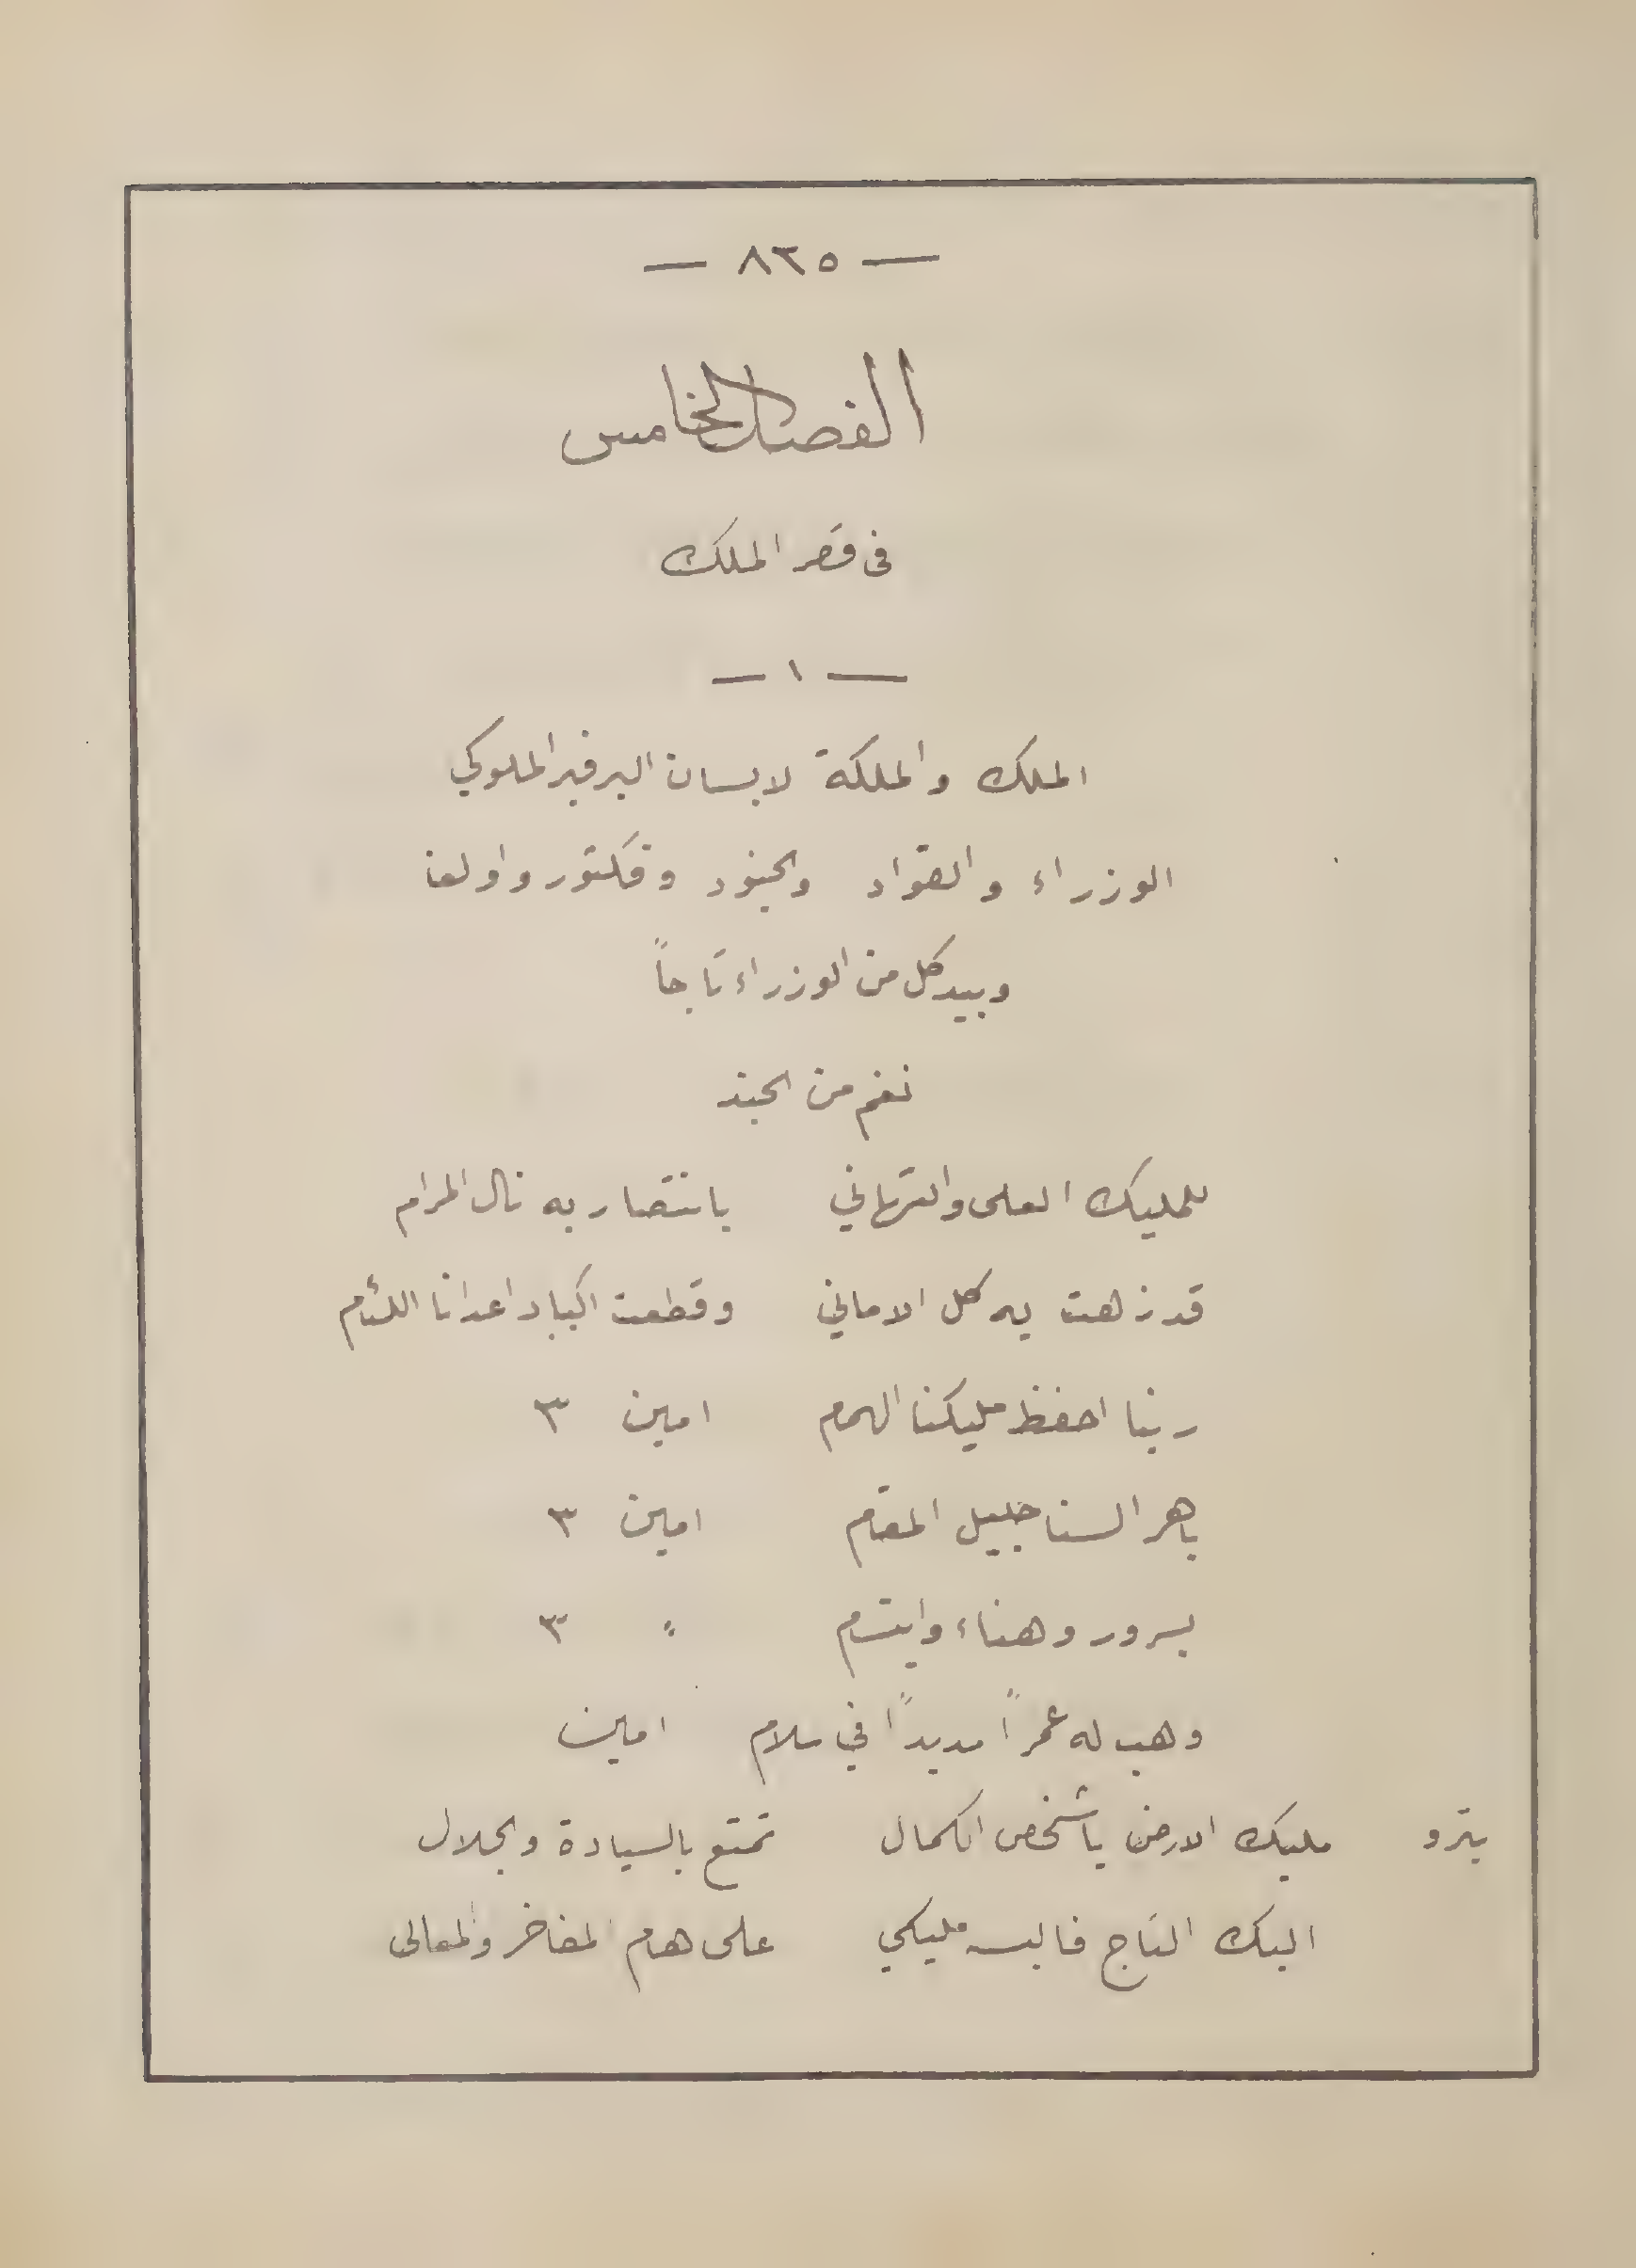 — ٨٢٥ —
الفصل الخامس
فى قصر الملك
— ١ —
الملك والملكة لابسان البرفير الملوكي
الوزراء والقواد والجنود وفكتور واولغا
وبيد كل من الوزراء تاجاً
نغم من الجند
للمليك العلى والتهاني بانتصار به نال المرام
قد زهت به كل الاماني وقطعت اكباد اعدانا اللئام
ربنا احفظ مليكنا الهمام امين ٣
باهر السنا جليل المقام امين ٣
بسرور وهناء وابتسام " ٣
وهب له عمراً مديداً في سلام امين
بترو مليك الارض ياشخص الكمال تمتع بالسيادة والجلال
اليك التاج فالبسه مليكي على هام المفاخر والمعالى